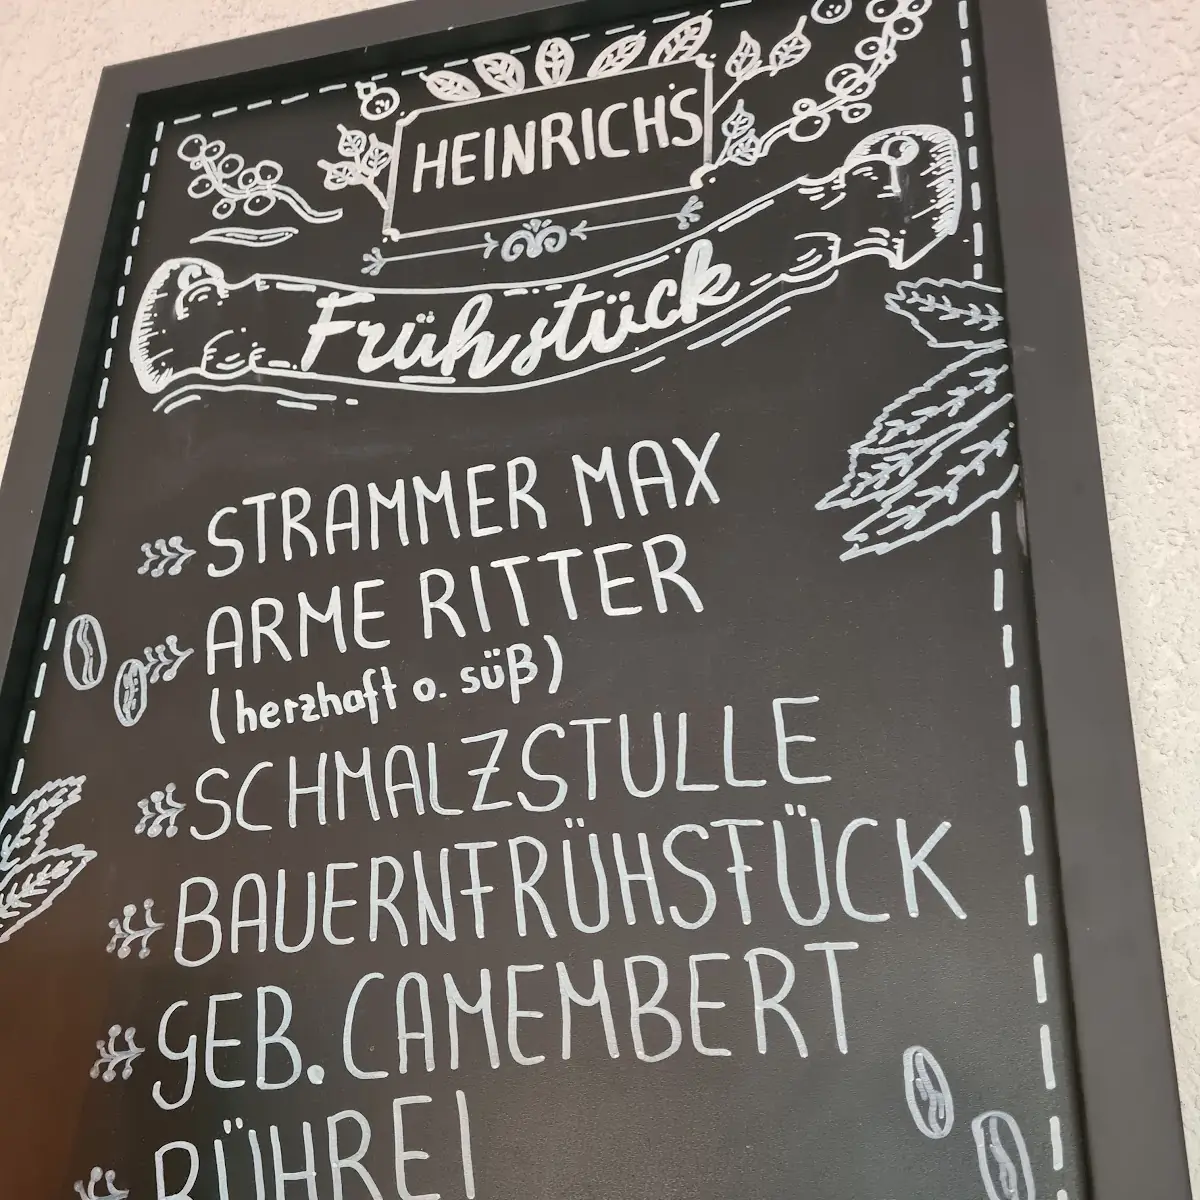 HEINRICH'S
Frühstück
STRAMMER MAX
ARME RITTER
(herzhaft o. süß)
SCHMALZSTULLE
BAUERNFRÜHSTÜCK
GEB. CAMEMBERT
RÜHREI